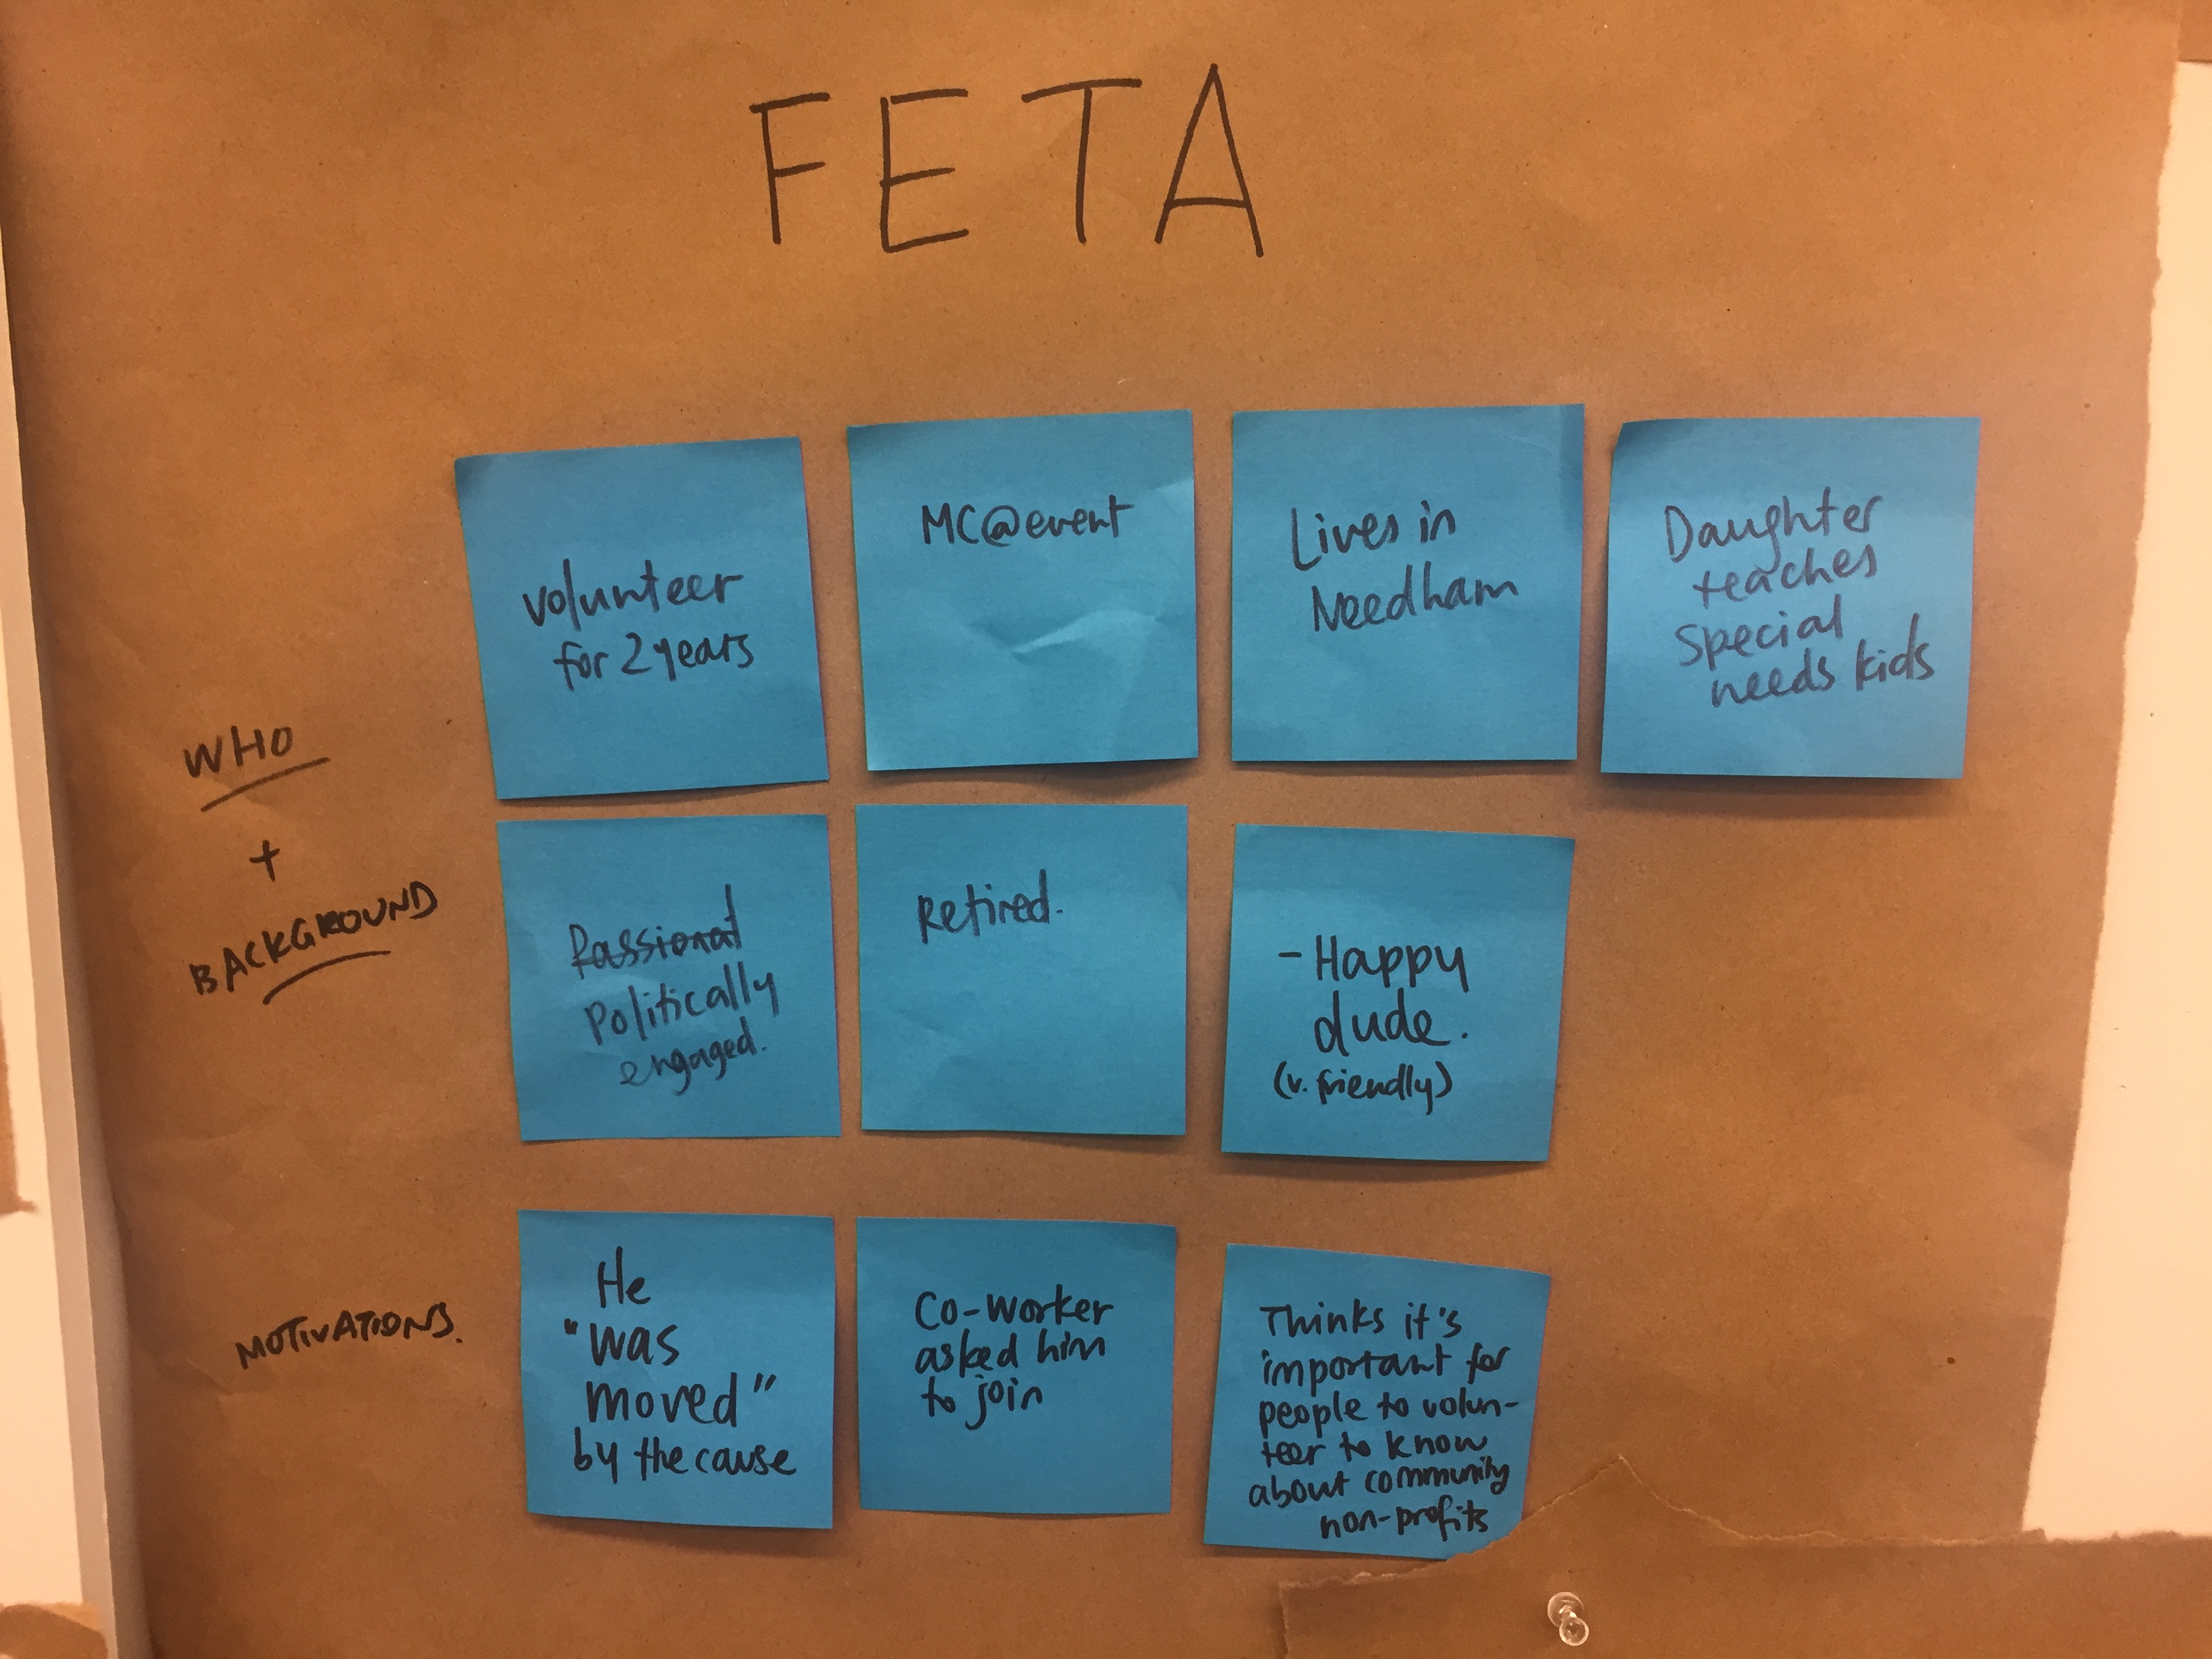 FETA
WHO
+
BACKGROUND
volunteer
for 2 years
MC@event
Lives in
Needham
Daughter
teaches
special
needs kids
Passionat
Politically
engaged.
Retired.
- Happy
dude.
(v. friendly)
MOTIVATIONS.
He
"was
moved"
by the cause
Co-worker
asked him
to join
Thinks it's
important for
people to volun-
teer to know
about community
non-profits